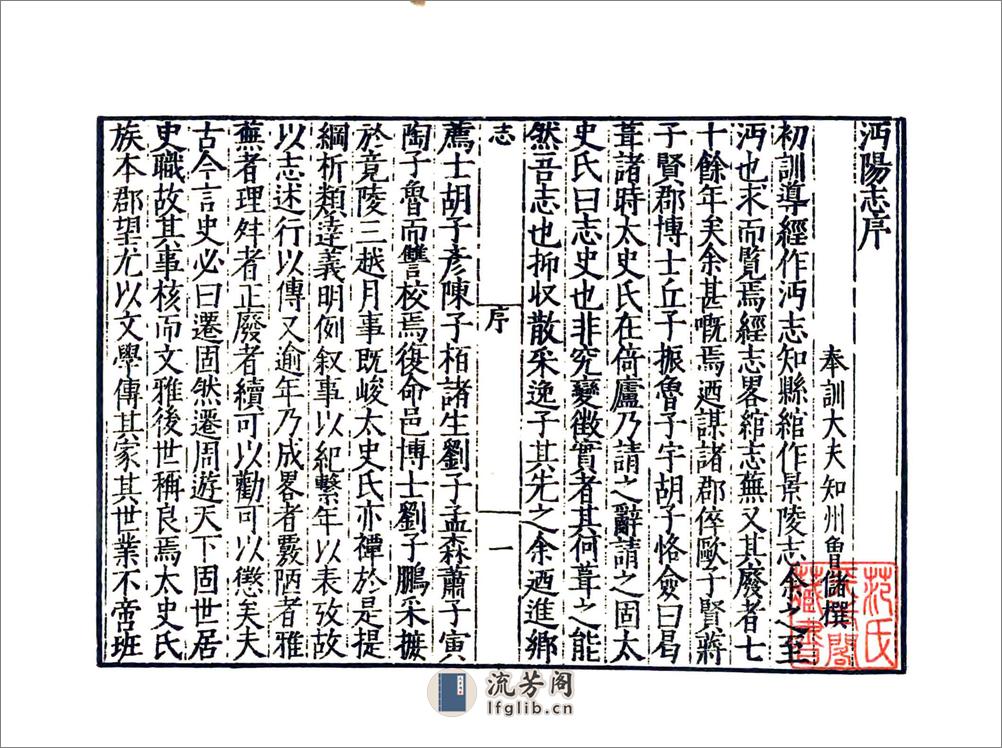 沔陽志序
奉訓大夫知州曾儲撰
初訓導經作沔志知縣綰作景陵志余之至
沔也求而覧焉經志畧綰志蕪又其廢者七
十餘年矣余甚嘅焉廼謀諸郡倅歐子賢蔣
子賢郡博士丘子振魯子宇胡子恪僉曰曷
葺諸時太史氏在倚廬乃請之辭請之固太
史氏曰志史也非究變徵實者其何葺之能
然吾志也抑収散采逸子其先之余廼進鄉
志
序
一
薦士胡子彥陳子栢諸生劉子孟森蕭子寅
陶子魯而讐校焉復命邑博士劉子鵬采摭
於竟陵三越月事既峻太史氏亦禫於是提
綱析類達義明例叙事以紀繫年以表攷故
以志述行以傳又逾年乃成畧者覈陋者雅
蕪者理舛者正廢者續可以勸可以懲矣夫
古今言史必曰遷固然遷周遊天下固世居
史職故其事核而文雅後世稱良焉太史氏
族本郡望尤以文學傳其家其世業不啻班
范氏
天一閣
藏書
流芳阁
lfglib.cn